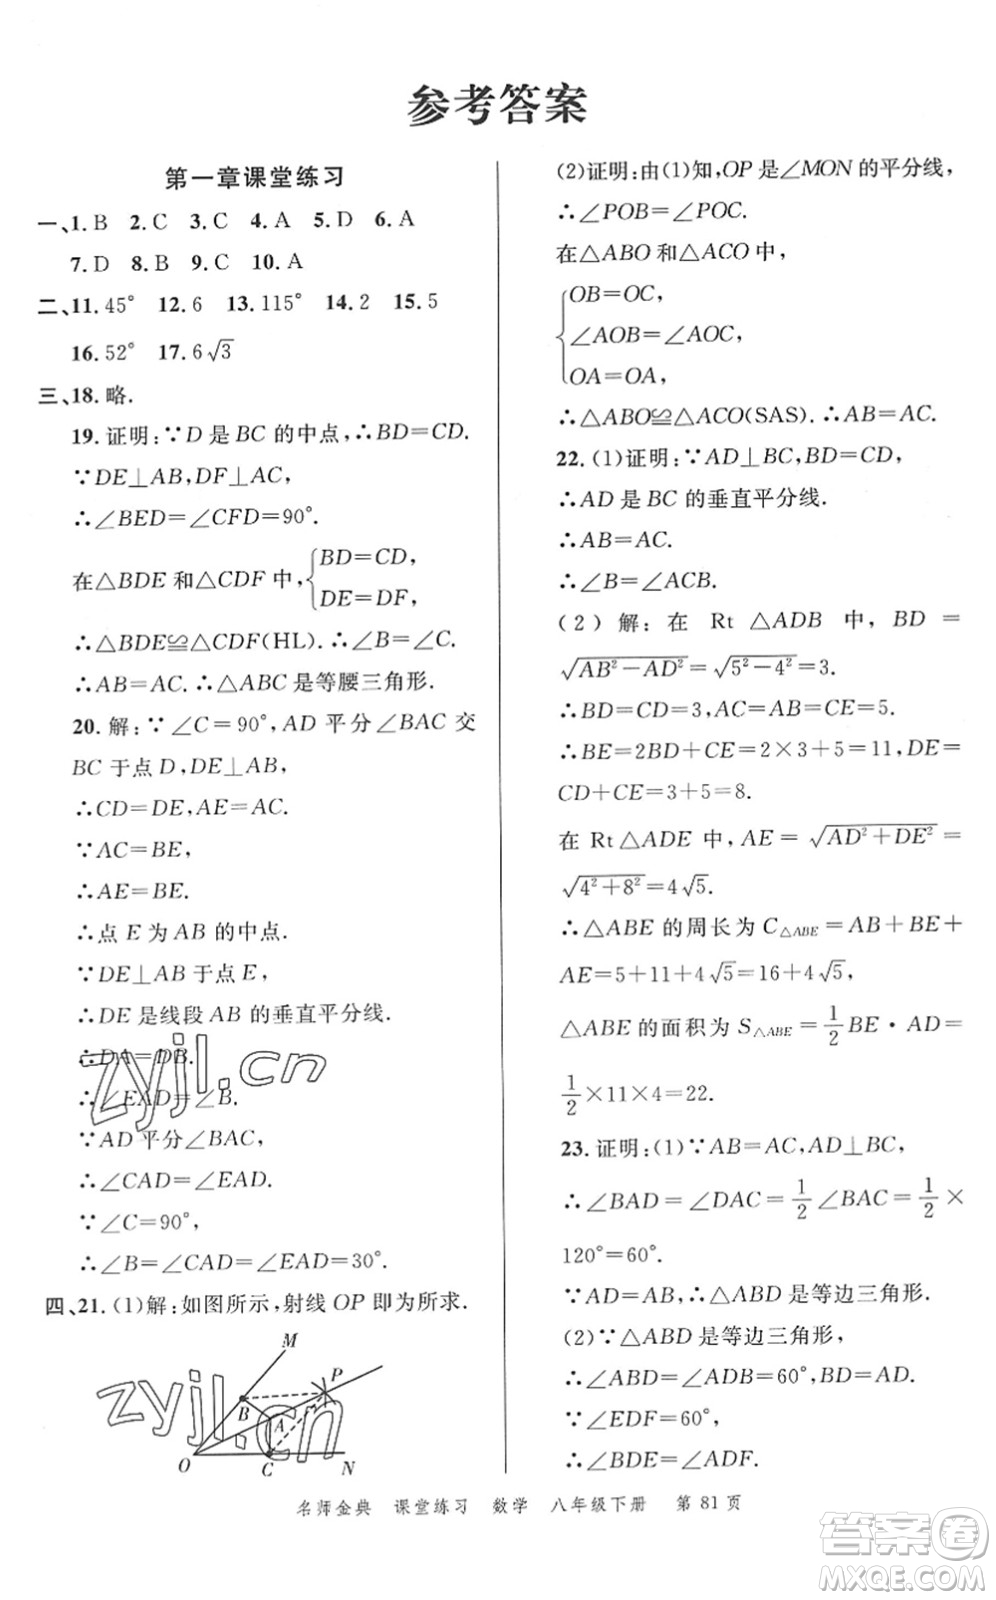 参考答案
第一章课堂练习
一、1. B 2. C 3. C 4. A 5. D 6. A
7. D 8. B 9. C 10. A
二、11. 45° 12. 6 13. 115° 14. 2 15. 5
16. 52° 17. 6√3
三、18. 略.
19. 证明:∵D 是 BC 的中点,∴BD=CD.
∵DE⊥AB,DF⊥AC,
∴∠BED=∠CFD=90°.
在△BDE 和△CDF 中,{BD=CD,
DE=DF,
∴△BDE≌△CDF(HL). ∴∠B=∠C.
∴AB=AC. ∴△ABC 是等腰三角形.
20. 解:∵∠C=90°,AD 平分∠BAC 交
BC 于点 D,DE⊥AB,
∴CD=DE,AE=AC.
∵AC=BE,
∴AE=BE.
∴点 E 为 AB 的中点.
∵DE⊥AB 于点 E,
∴DE 是线段 AB 的垂直平分线.
∴DA=DB.
∴∠EAD=∠B.
∵AD 平分∠BAC,
∴∠CAD=∠EAD.
∵∠C=90°,
∴∠B=∠CAD=∠EAD=30°.
四、21. (1)解:如图所示,射线 OP 即为所求.
M
P
B
A
O C N
(2)证明:由(1)知,OP 是∠MON 的平分线,
∴∠POB=∠POC.
在△ABO 和△ACO 中,
{OB=OC,
∠AOB=∠AOC,
OA=OA,
∴△ABO≌△ACO(SAS). ∴AB=AC.
22. (1)证明:∵AD⊥BC,BD=CD,
∴AD 是 BC 的垂直平分线.
∴AB=AC.
∴∠B=∠ACB.
(2)解:在 Rt △ADB 中,BD=
√(AB²-AD²)=√(5²-4²)=3.
∴BD=CD=3,AC=AB=CE=5.
∴BE=2BD+CE=2×3+5=11,DE=
CD+CE=3+5=8.
在 Rt△ADE 中,AE=√(AD²+DE²)=
√(4²+8²)=4√5.
∴△ABE 的周长为 C△ABE=AB+BE+
AE=5+11+4√5=16+4√5,
△ABE 的面积为 S△ABE=1/2 BE·AD=
1/2×11×4=22.
23. 证明:(1)∵AB=AC,AD⊥BC,
∴∠BAD=∠DAC=1/2∠BAC=1/2×
120°=60°.
∵AD=AB,∴△ABD 是等边三角形.
(2)∵△ABD 是等边三角形,
∴∠ABD=∠ADB=60°,BD=AD.
∵∠EDF=60°,
∴∠BDE=∠ADF.
名师金典 课堂练习 数学 八年级下册 第 81 页
zyjl.cn
zyjl.cn
答案圈
MXQE.COM